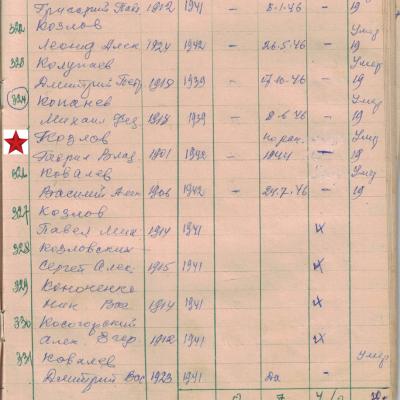 Григорий 1912 1941 - 8-1-46 - 19
322 Козлов Умер
Леонид Алек 1924 1942 - 26.5.46 - 19
323 Колупаев Умер
Дмитрий Петр 1918 1939 - 17.10.46 - 19
324 Копанев Умер
Михаил Фед 1918 1939 - 8-6-46 - 19
Козлов по ран. Умер
Гаврил Влад 1901 1942 - 1944 - 19
326 Ковалев Умер
Василий Алек 1906 1942 - 24.7.46 - 19
327 Козлов
Павел Мих 1914 1941 х
328 Козловских
Сергей Алек 1915 1941 х
329 Кононенко
Ник 1914 1941 х
330 Косогорский
Алек Егор 1912 1941 х
331 Ковалев Умер
Дмитрий Вас 1923 1941 Да -